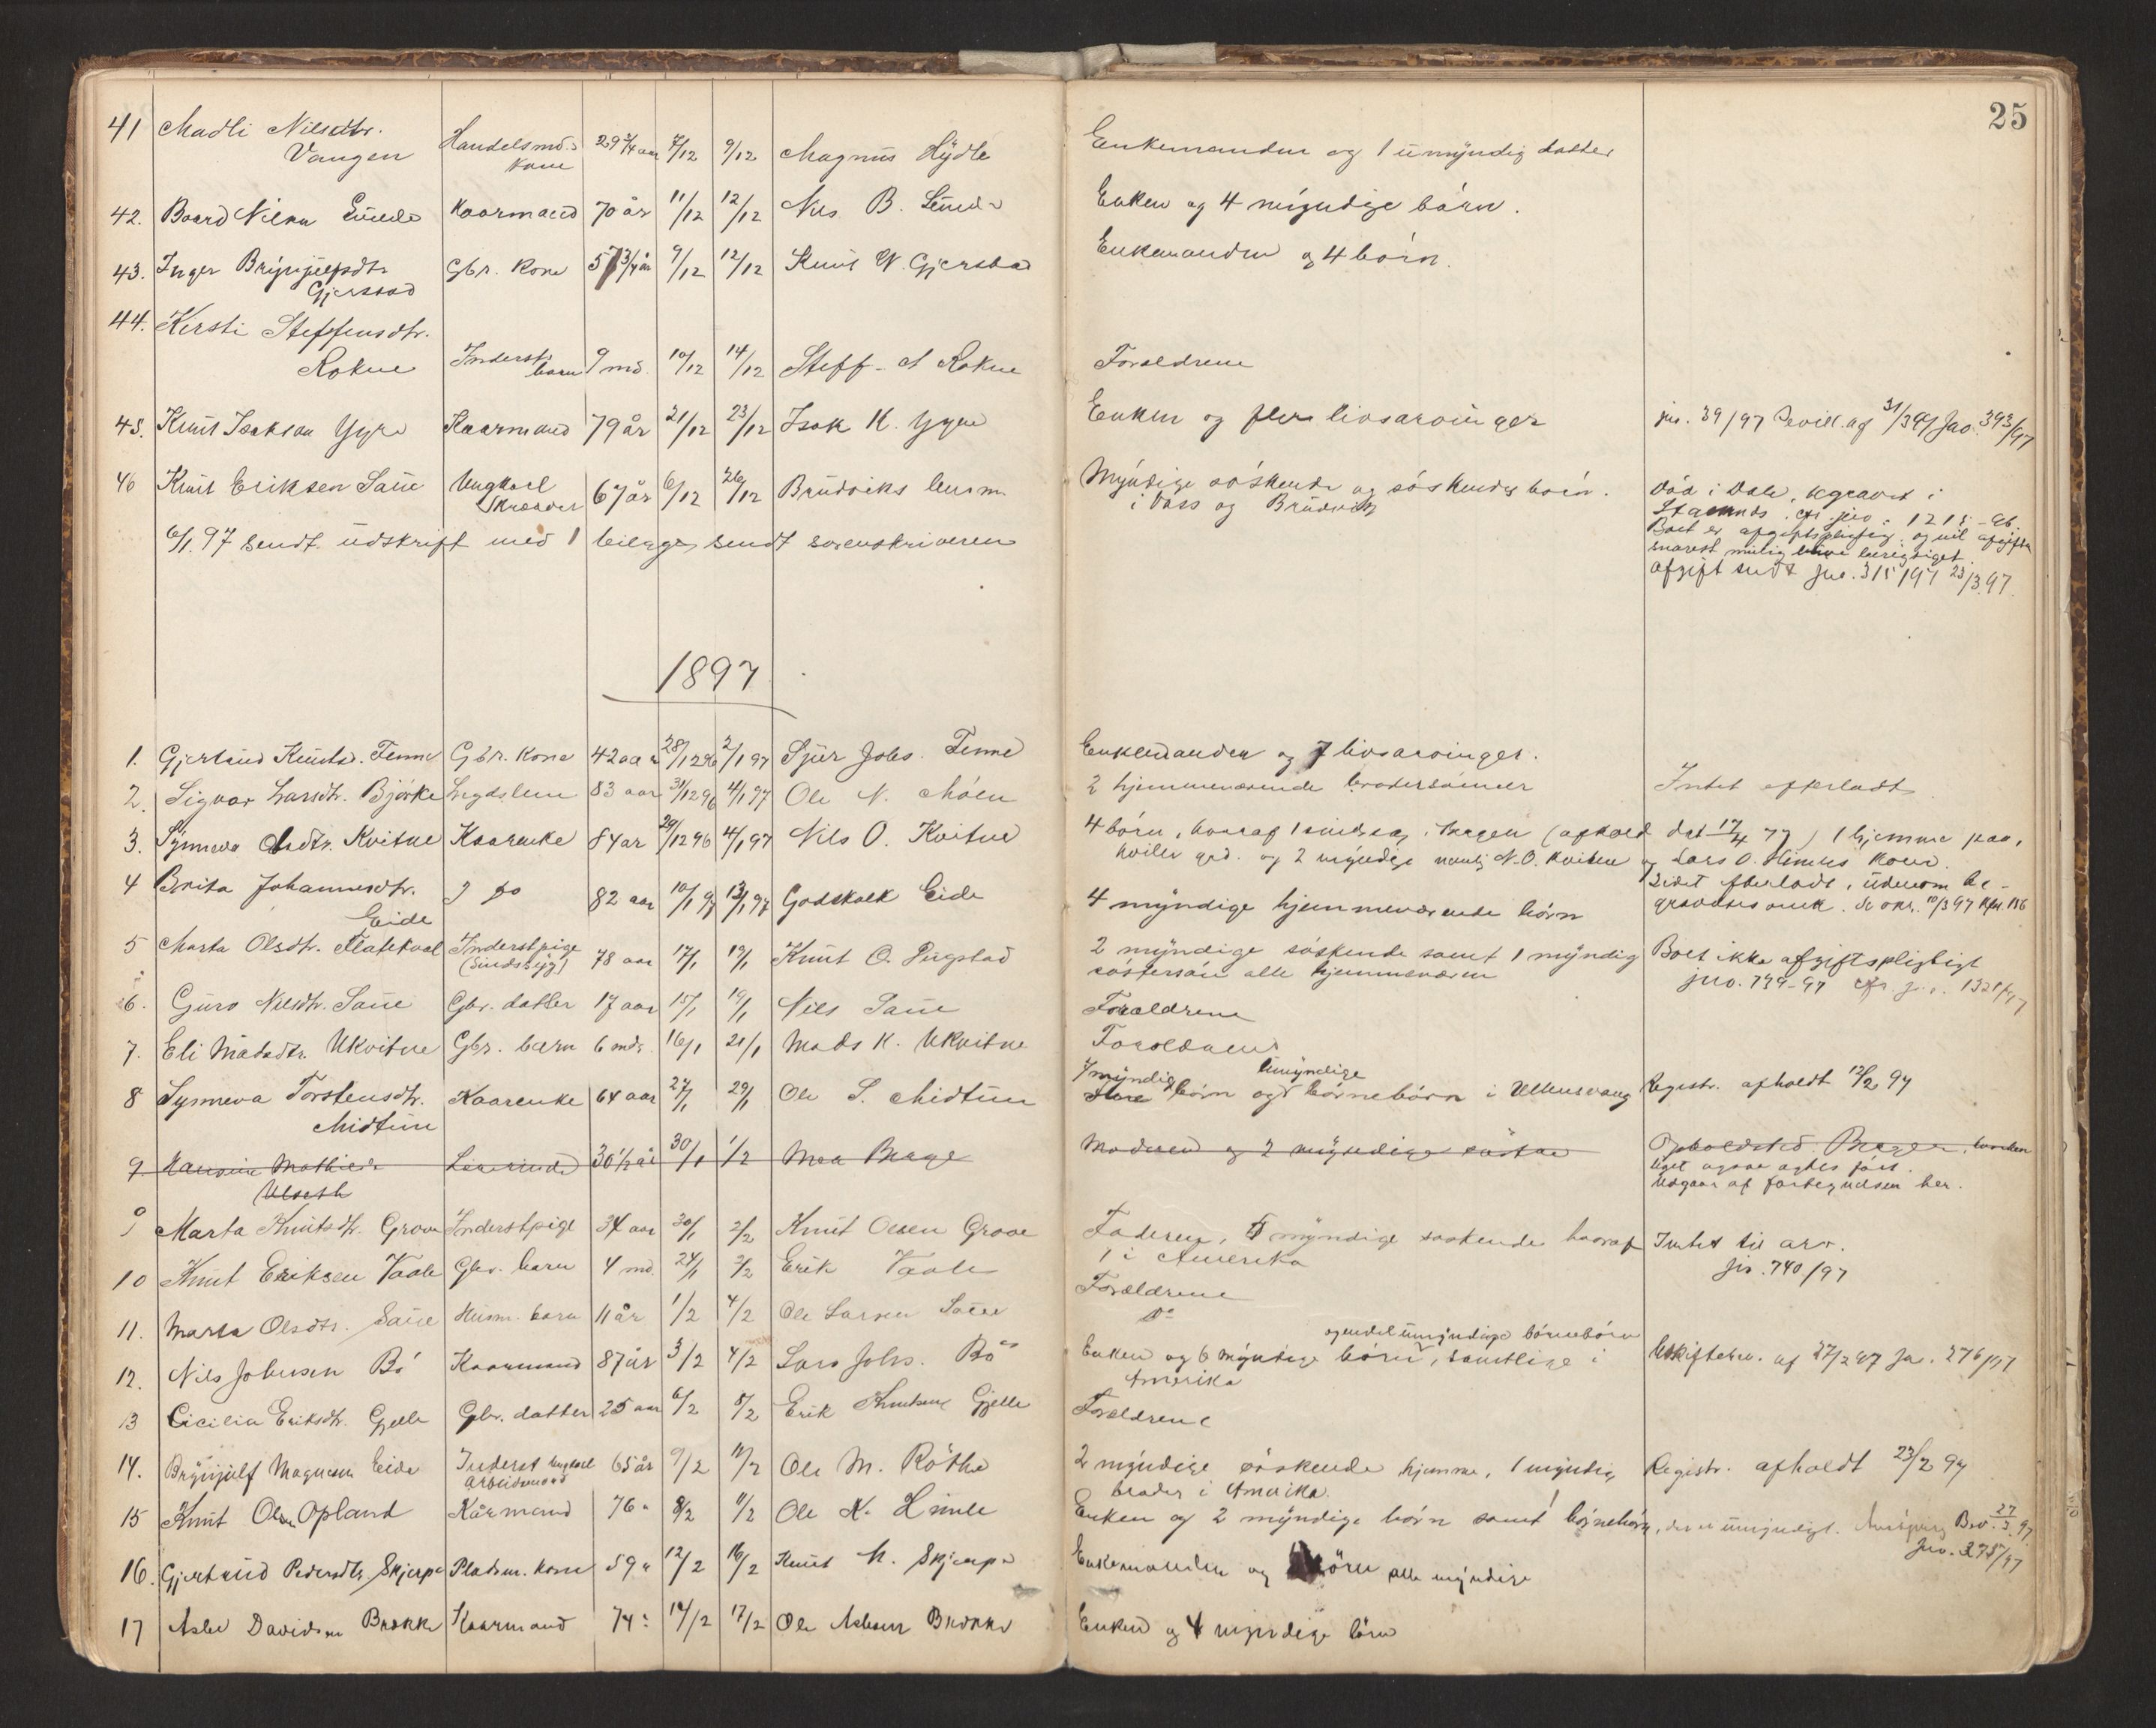 25
41 Madli Nilsdtr. Vangen Handelsmd.s kone 29 3/4 aar 7/12 9/12 Magnus Hydle Enkemanden og 1 umyndig datter
42. Baard Nilsen Kaarmand 70 år 11/12 12/12 Nils B. Enken og 4 myndige börn.
43. Inger Brynjulfsdtr. Gjerstad Gbr. kone 3/4 år 9/12 12/12 Knut N. Gjerstad Enkemanden og 4 börn.
44. Kersti Steffensdtr.
Rokne Inderst. barn 9 md. 10/12 14/12 Steff. Rokne Foraldrene
45. Knut Isakson Ygre Kaarmand 79 år 21/12 23/12 Isak K. Ygre Enken og flere livsarvinger jno. 39/97 Bevill. af 31/3 97 Jno. 393/97
46 Knut Eriksen Saue Ungkarl Skrædder 67 år 6/12 26/12 Brudviks lensm. Myndige söskende og söskendes börn.
i Voss og Brudvik
Död i Dale, begravet i
Stamnds. cfr. jno. 1215 - 96.
Boet er afgiftspligtig og vil afgiften
snarest mulig blive berigtiget.
Afgift sendt jno. 315/97 23/3.97.
6/1 97 sendt udskrift med 1 bilage, sendt sorenskriveren
1897
1. Gjertrud Knutsd. Finne Gbr. kone 42 aar 28/12 96 2/1 97 Sjur Johs. Finne Enkemanden og 7 livsarvinger.
2. Sigvor Larsdtr. Björke Lægdslem 83 aar 31/12 96 4/1 97 Ole N. Möen 2 hjemmeværende brodersönner Intet efterladt
3. Synneva Olsdtr. Kvitne Kaarenke 84 ar 29/12 96 4/1 97 Nils O. Kvitne 4 börn, hvoraf 1 i Bergen 1 hjemme paa,
og 2 myndige nemlig N. O. Kvitne og Lars O. Himles kone.
4 Brita Johannesdtr. Eide 82 aar 10/1 97 13/1 97 Godskalk Eide 4 myndige hjemmeværende börn Intet efterladt, udenom be-
gravelsesomk.
5 Marta Olsdtr. Flatekval Inderstpige (Sindssyg) 78 aar 17/1 19/1 Knut O. Rugstad 2 myndige söskende samt 1 myndig
söstersön alle hjemmeværen
Boet ikke afgiftspligtigt
jno. 739-97 cfr. jno. 1321/97
6. Guro Nilsdtr. Saue Gbr. datter 17 aar 15/1 19/1 Nils Saue Foraldrene
7. Eli Madsdtr. Ukvitne Gbr. barn 6 mdr. 16/1 21/1 Mads K. Ukvitne Foraldrene
8 Synneva Torstensdtr. Midtun Kaarenke 64 aar 27/1 29/1 Ole S. Midtun 7 myndige börn og umyndige börnebörn i Ullensvang Registr. afholdt 12/2 97
9 Mathilde Ulseth Lærerinde 30 1/2 år 30/1 1/2 Moa Berge Moderen og 2 myndige söstre Opholdsted Bergen, hvorhen
liget ogsaa agtes fört.
Udgaar af fortegnelsen her.
9 Marta Knutsdtr. Grove Inderstpige 34 aar 30/1 2/2 Knut Olsen Grove Faderen, 5 myndige söskende hvoraf
1 i Amerika
Intet til arv.
jno. 740/97
10 Knut Eriksen Vaale Gbr. barn 4 md. 24/1 3/2 Erik Vaale Foraldrene
11. Marta Olsdtr. Saue Husm. barn 11 år 1/2 4/2 Ole Larsen Saue Do
12. Nils Johnsen Bö Kaarmand 87 år 3/2 4/2 Lars Johs. Bö Enken og 6 myndige börn, og endel umyndige börnebörn, samtlige i
Amerika
Uskiftebev. af 27/2 97 Jn. 276/97
13 Cicilia Eriksdtr. Gjelle Gbr. datter 25 aar 6/2 8/2 Erik Knutsen Gjelle Foraldrene
14. Brynjulf Magnesen Eide Inderst ungkarl arbeidsmand 65 år 9/2 11/2 Ole M. Röthe 2 myndige söskende hjemme, 1 myndig
broder i Amerika.
Registr. afholdt 23/2 97
15 Knut Olsen Opland Kårmand 76 " 8/2 11/2 Ole K. Himle Enken og 2 myndige börn samt 1 börnebarn, der er umyndigt. Bev. 27/3 97.
Jno. 375/97
16. Gjertrud Pedersdtr. Skjerpe Pladsm. kone 59 " 12/2 16/2 Knut M. Skjerpe Enkemanden og börn alle myndige
17 Aslei Davidsen Brekke Kaarmand 74 " 14/2 17/2 Ole Asleson Brekke Enken og 4 myndige börn